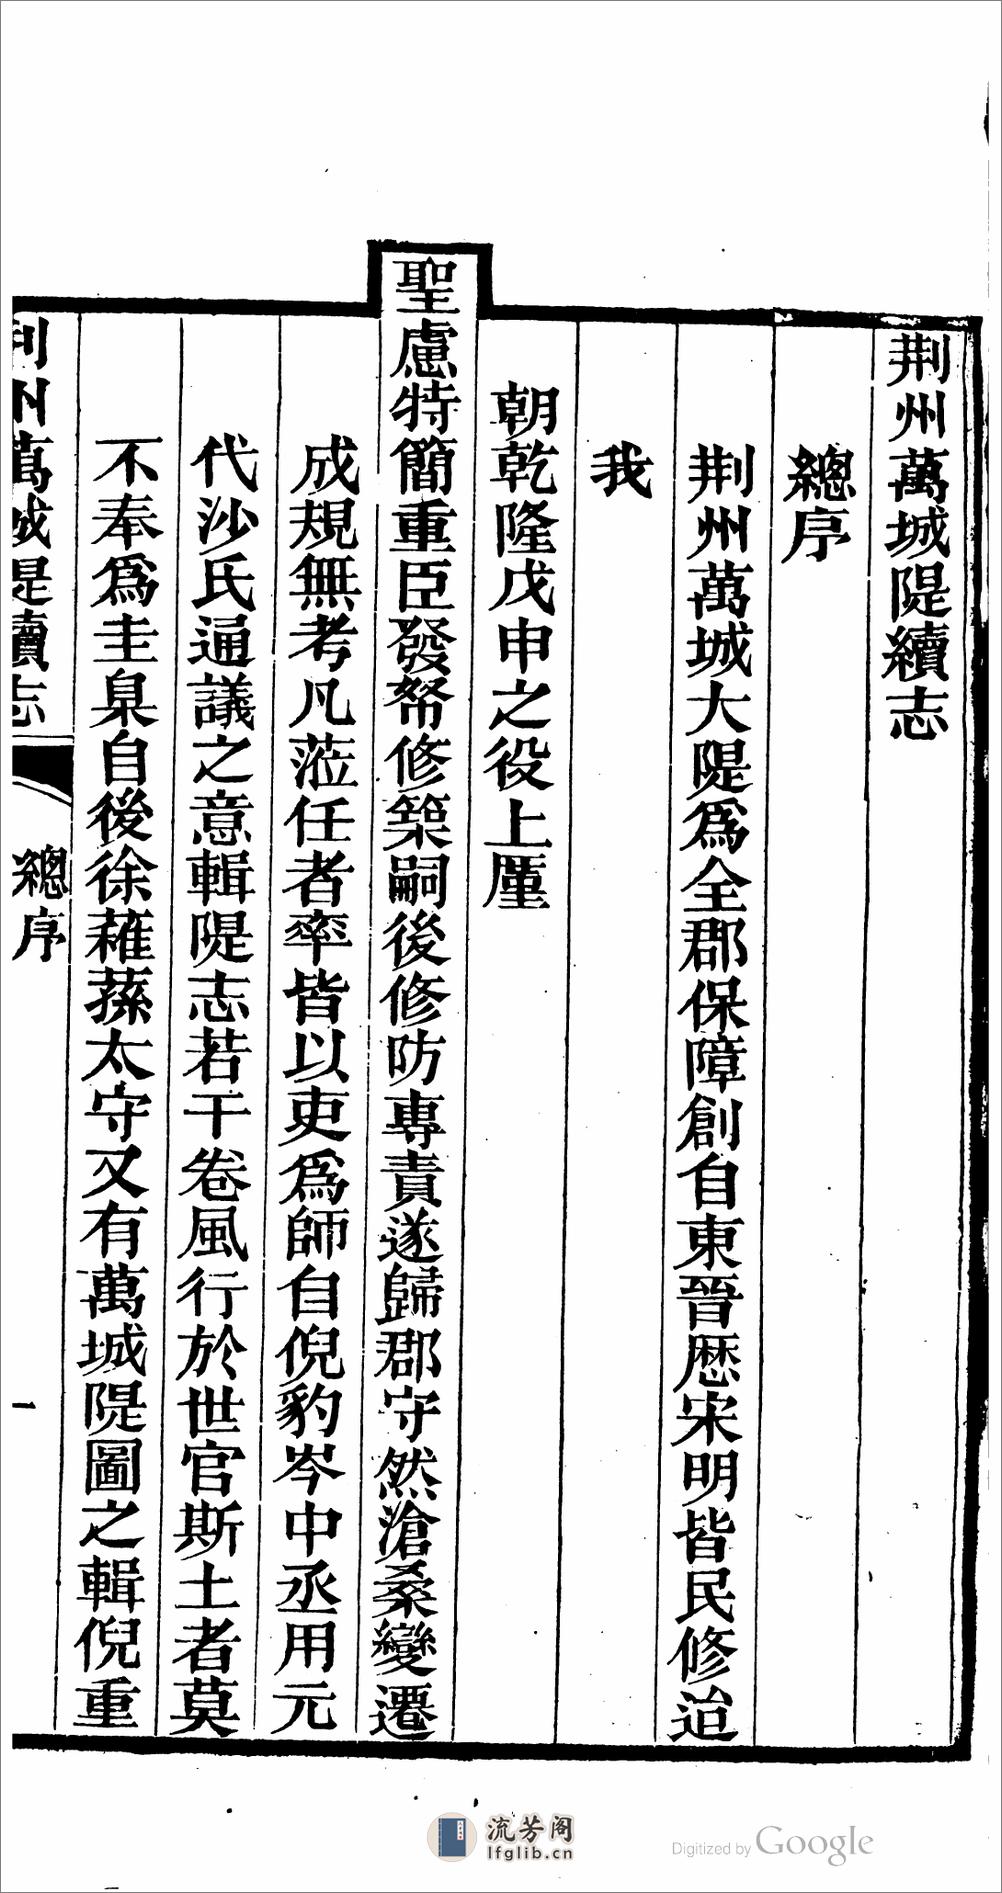 荆州萬城隄續志
總序
荆州萬城大隄爲全郡保障創自東晉歷宋明皆民修迨
我
朝乾隆戊申之役上厪
聖慮特簡重臣發帑修築嗣後修防專責遂歸郡守然滄桑變遷
成規無考凡蒞任者率皆以吏爲師自倪豹岑中丞用元
代沙氏通議之意輯隄志若干卷風行於世官斯土者莫
不奉爲圭臬自後徐蕥蓀太守又有萬城隄圖之輯倪重
荆州萬城隄續志
總序
一
流芳阁
lfglib.cn
Digitized by Google